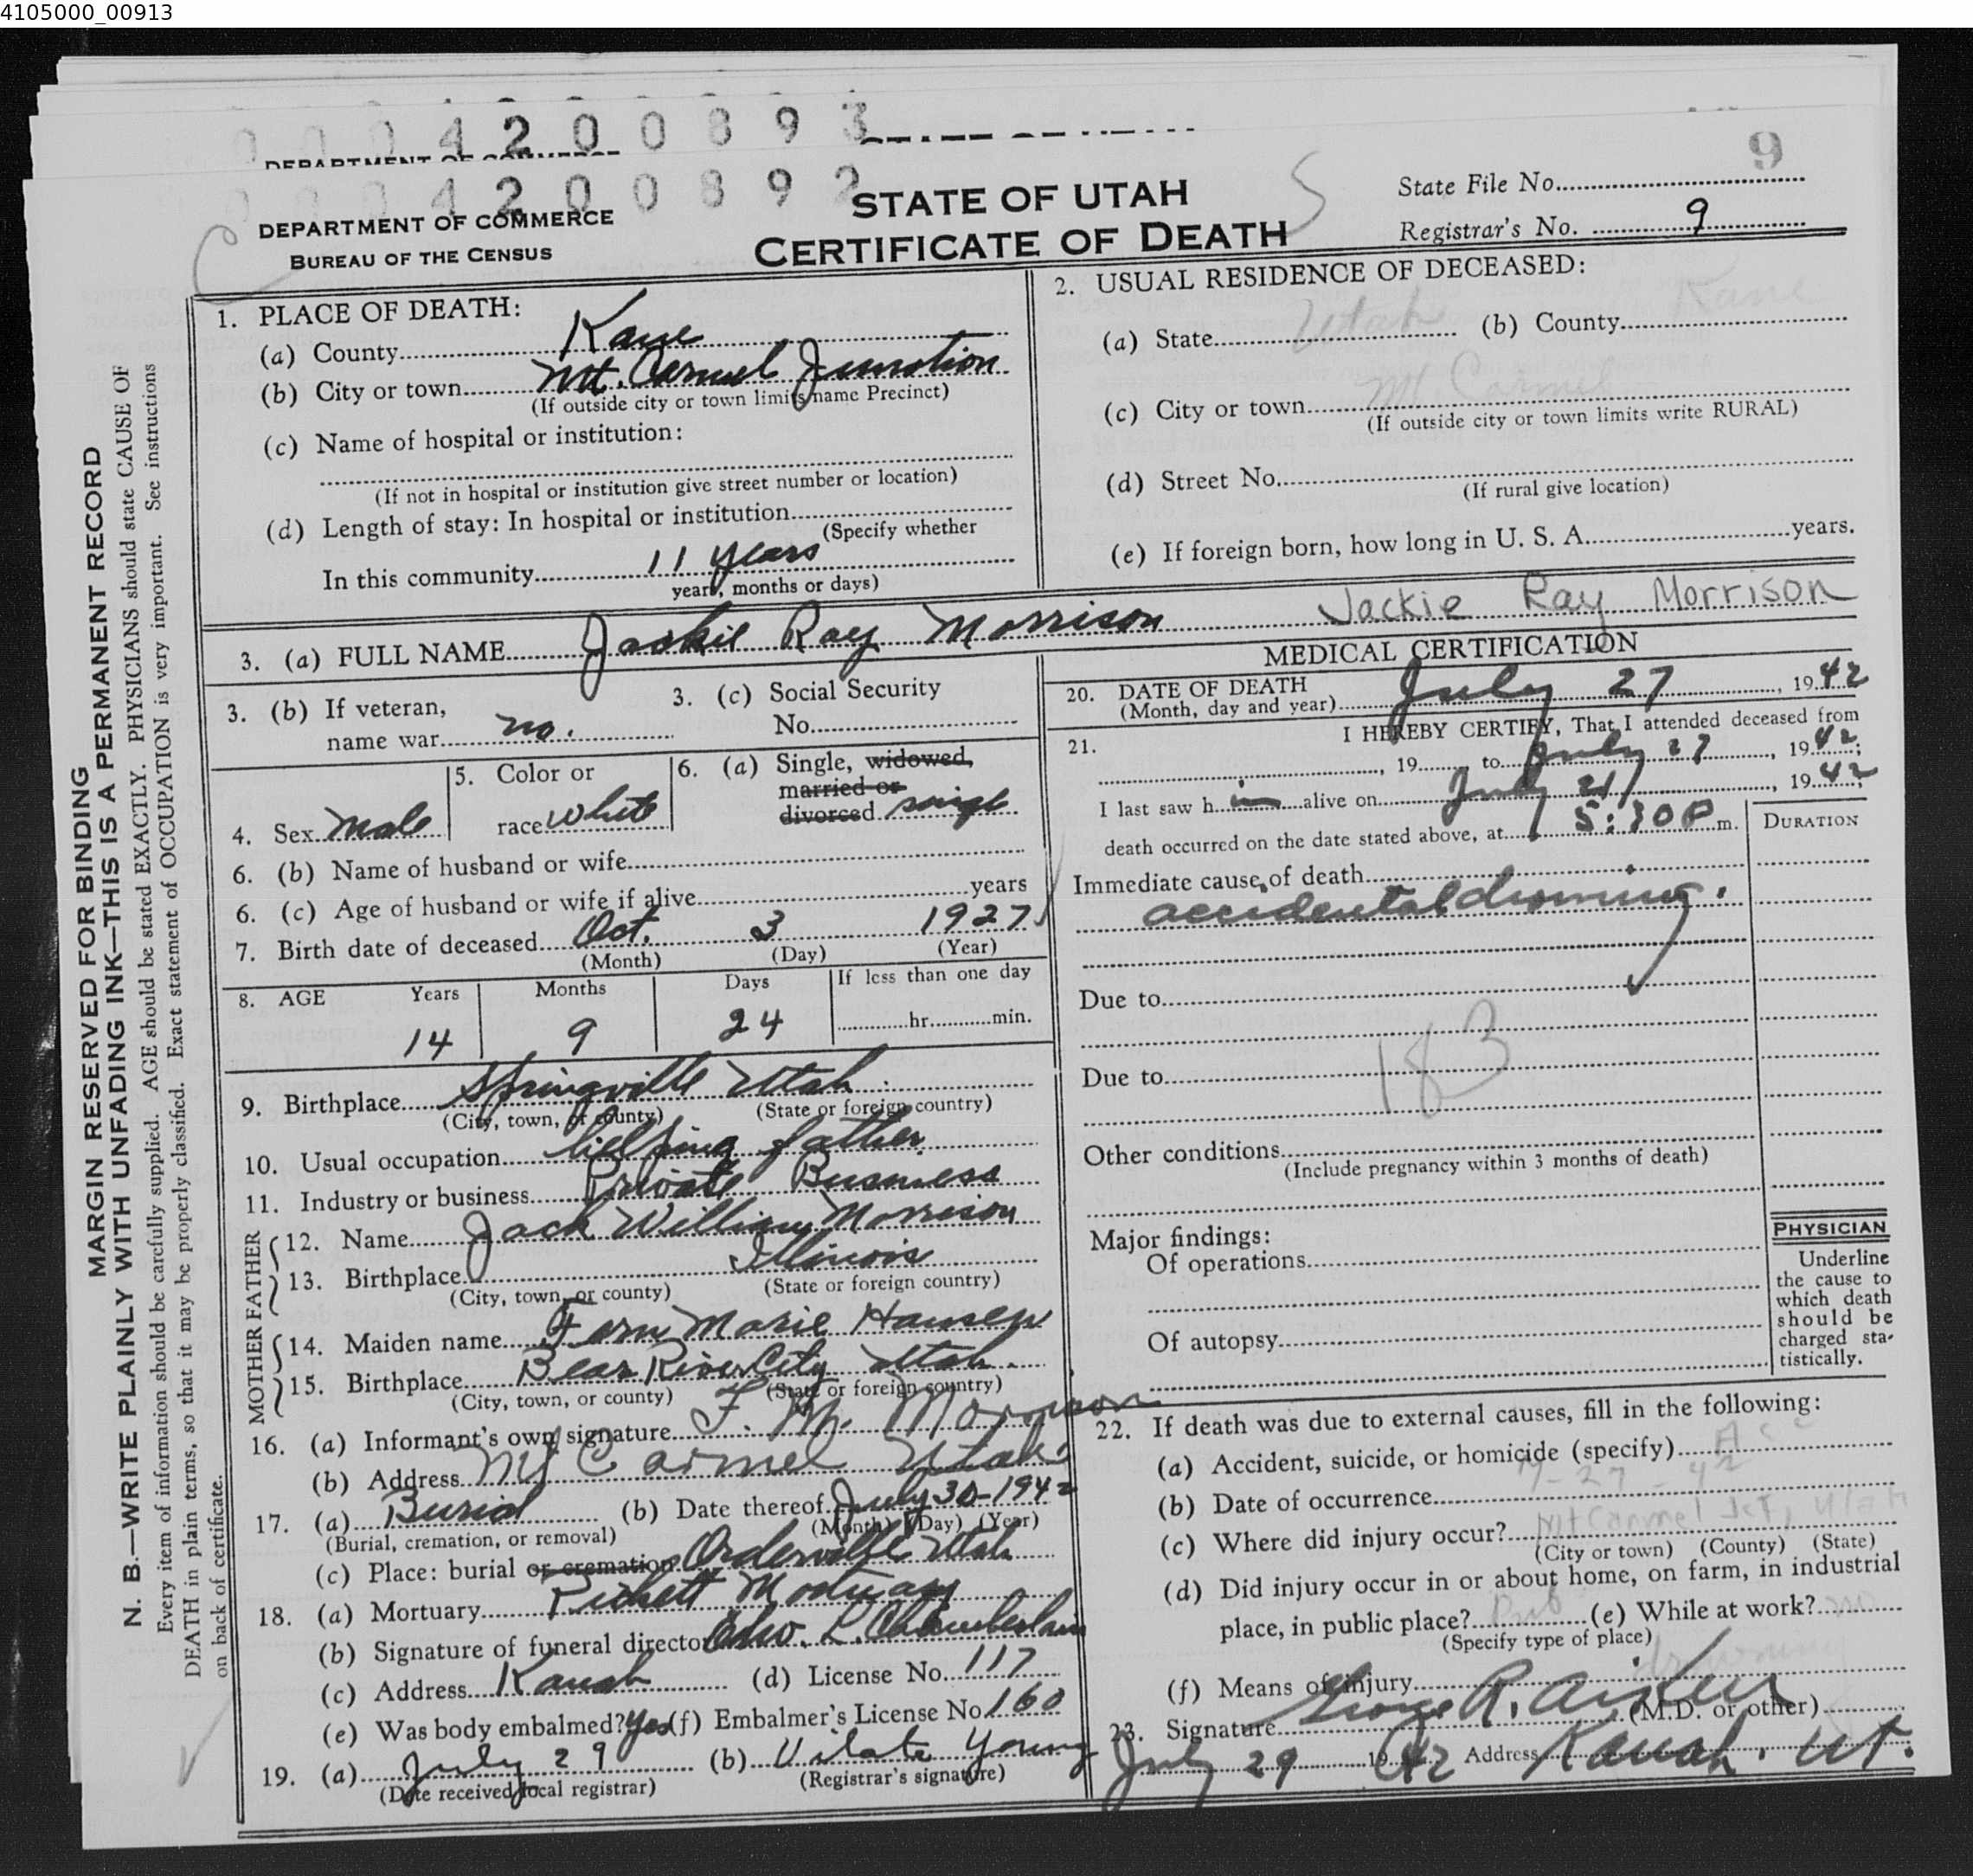 4105000_00913
0 0 0 4 2 0 0 8 9 3
0 0 0 4 2 0 0 8 9 2
9
DEPARTMENT OF COMMERCE
BUREAU OF THE CENSUS
STATE OF UTAH
CERTIFICATE OF DEATH
State File No.
Registrar's No. 9
MARGIN RESERVED FOR BINDING
N. B.—WRITE PLAINLY WITH UNFADING INK—THIS IS A PERMANENT RECORD
Every item of information should be carefully supplied. AGE should be stated EXACTLY. PHYSICIANS should state CAUSE OF
DEATH in plain terms, so that it may be properly classified. Exact statement of OCCUPATION is very important. See instructions
on back of certificate.
1. PLACE OF DEATH:
(a) County Kane
(b) City or town Mt. Carmel Junction
(If outside city or town limits name Precinct)
(c) Name of hospital or institution:
(If not in hospital or institution give street number or location)
(d) Length of stay: In hospital or institution
(Specify whether
In this community 11 years
years, months or days)
2. USUAL RESIDENCE OF DECEASED:
(a) State Utah (b) County Kane
(c) City or town Mt. Carmel
(If outside city or town limits write RURAL)
(d) Street No.
(If rural give location)
(e) If foreign born, how long in U. S. A. years.
3. (a) FULL NAME Jackie Ray Morrison Jackie Ray Morrison
3. (b) If veteran,
name war no.
3. (c) Social Security
No.
4. Sex Male
5. Color or
race White
6. (a) Single, widowed,
married or
divorced single
6. (b) Name of husband or wife
6. (c) Age of husband or wife if alive years
7. Birth date of deceased Oct. 3 1927
(Month) (Day) (Year)
8. AGE Years Months Days If less than one day
14 9 24 hr. min.
9. Birthplace Springville Utah
(City, town, or county) (State or foreign country)
10. Usual occupation helping father
11. Industry or business Private Business
FATHER
12. Name Jack William Morrison
13. Birthplace Illinois
(City, town, or county) (State or foreign country)
MOTHER
14. Maiden name Fern Marie Hansen
15. Birthplace Bear River City Utah.
(City, town, or county) (State or foreign country)
16. (a) Informant's own signature F. M. Morrison
(b) Address Mt Carmel Utah
17. (a) Burial (b) Date thereof July 30-1942
(Burial, cremation, or removal) (Month) (Day) (Year)
(c) Place: burial or cremation Orderville Utah
18. (a) Mortuary Pickett Mortuary
(b) Signature of funeral director L. Chamberlain
(c) Address Kanab (d) License No. 117
(e) Was body embalmed? Yes (f) Embalmer's License No. 160
19. (a) July 29 (b) Vilate Young
(Date received local registrar) (Registrar's signature)
MEDICAL CERTIFICATION
20. DATE OF DEATH
(Month, day and year) July 27, 1942
21. I HEREBY CERTIFY, That I attended deceased from
, 19 , to July 27, 1942;
I last saw him alive on July 21, 1942;
death occurred on the date stated above, at 5:30 P m.
DURATION
Immediate cause of death
accidental drowning.
Due to
183
Due to
Other conditions
(Include pregnancy within 3 months of death)
Major findings:
Of operations
Of autopsy
PHYSICIAN
Underline
the cause to
which death
should be
charged sta-
tistically.
22. If death was due to external causes, fill in the following:
(a) Accident, suicide, or homicide (specify) Acc
(b) Date of occurrence 7-27-42
(c) Where did injury occur? Mt Carmel Jct, Utah
(City or town) (County) (State)
(d) Did injury occur in or about home, on farm, in industrial
place, in public place? Pub (e) While at work? no
(Specify type of place)
(f) Means of injury drowning
23. Signature George R. Aiken (M.D. or other)
July 29 1942 Address Kanab. Ut.